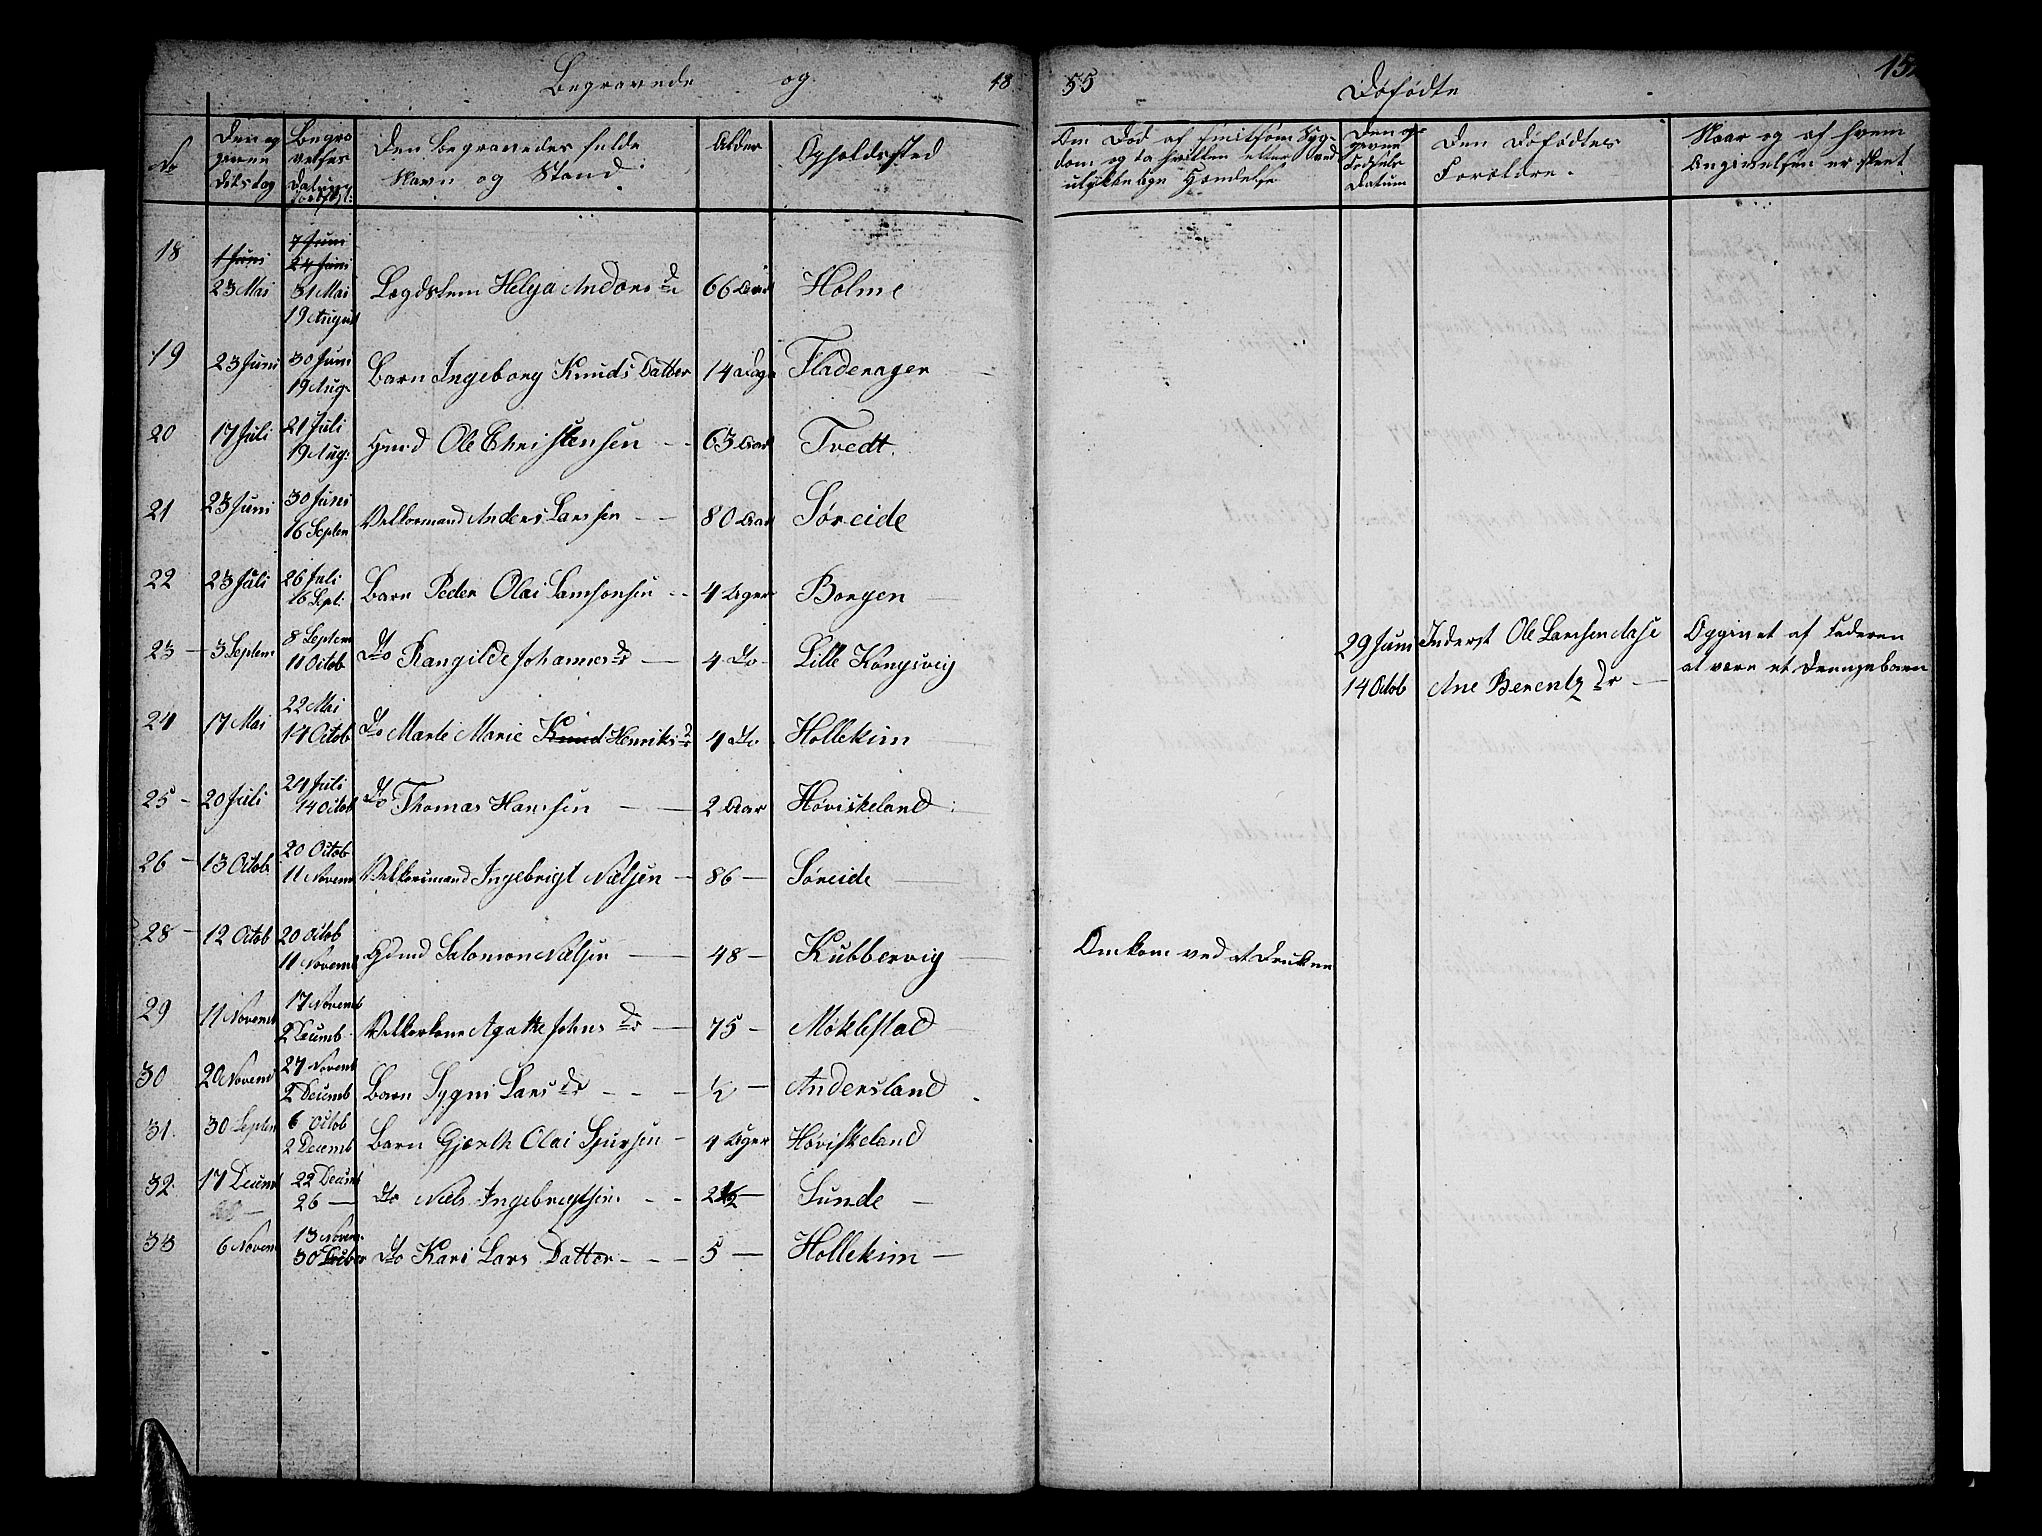 Begravede og 18
55 Døfødte 15
No
Den op
givne
Dødsdag
Begra
velses
Datum
Den Begravedes fulde
Navn og Stand
Alder
Opholdssted
Om Død af smitsom Syg-
dom og da hvilken eller ved
ulykkelige Hændelse
Den op-
givne
Fødsels
Datum
Den Døfødtes
Forældre.
Naar og af hvem
Angivelsen er skeet
18 1 Juni 7 Juni
24 Juni
23 Mai 31 Mai Lægdslem Helga Anders Dr 66 Aar Holme
19 August
19 23 Juni 30 Juni
19 Aug: Barn Ingeborg Knuds Datter 14 Dage Fladerager
20 17 Juli 21 Juli
19 Aug: Gmd Ole Christensen 63 Aar Tvedt
21 23 Juni 30 Juni
16 Septem Velkormand Anders Larssen 80 Aar Søreide
22 23 Juli 26 Juli
16 Sept: Barn Peder Olai Samsonsen 4 Uger Borgen
23 3 Septem 8 Septem
11 Octob Do Rangilde Johannes Dr 4 Do Lille Kongsvig
29 Juni Inderst Ole Larsen Aase Opgivet af Faderen
14 Octob Ane Berentz Dr at være et Drengebarn
24 17 Mai 22 Mai
14 Octob Do Marte Marie Knud Henriks Dr 4 Do Hollekim
25 20 Juli 24 Juli
14 Octob Do Thomas Hansen 2 Aar Høviskeland
26 13 Octob 20 Octob
11 Novem Velkorsmand Ingebrigt Nælsen 86 Søreide
28 12 Octob 20 Octob
11 Novemb Gdmd Salomon Nælsen 48 Kubbervig Omkom ved at Drukne
29 11 Novemb 17 Novemb
2 Decemb Velkorkone Agathe Johns Dr 75 Møklestad
30 20 Novemb 27 Novemb
2 Decemb Barn Sygni Lars Dr ½ Andersland
31 30 Septem 6 Octob
2 Decemb Barn Gjerth Olai Sjursen 4 Uger Høviskeland
32 17 Decem 22 Decemb
26 Do Niels Ingebregtsen 2½ Sunde
33 6 Novem 13 Novem
30 Decber Do Kari Lars Datter 5 Hollekim